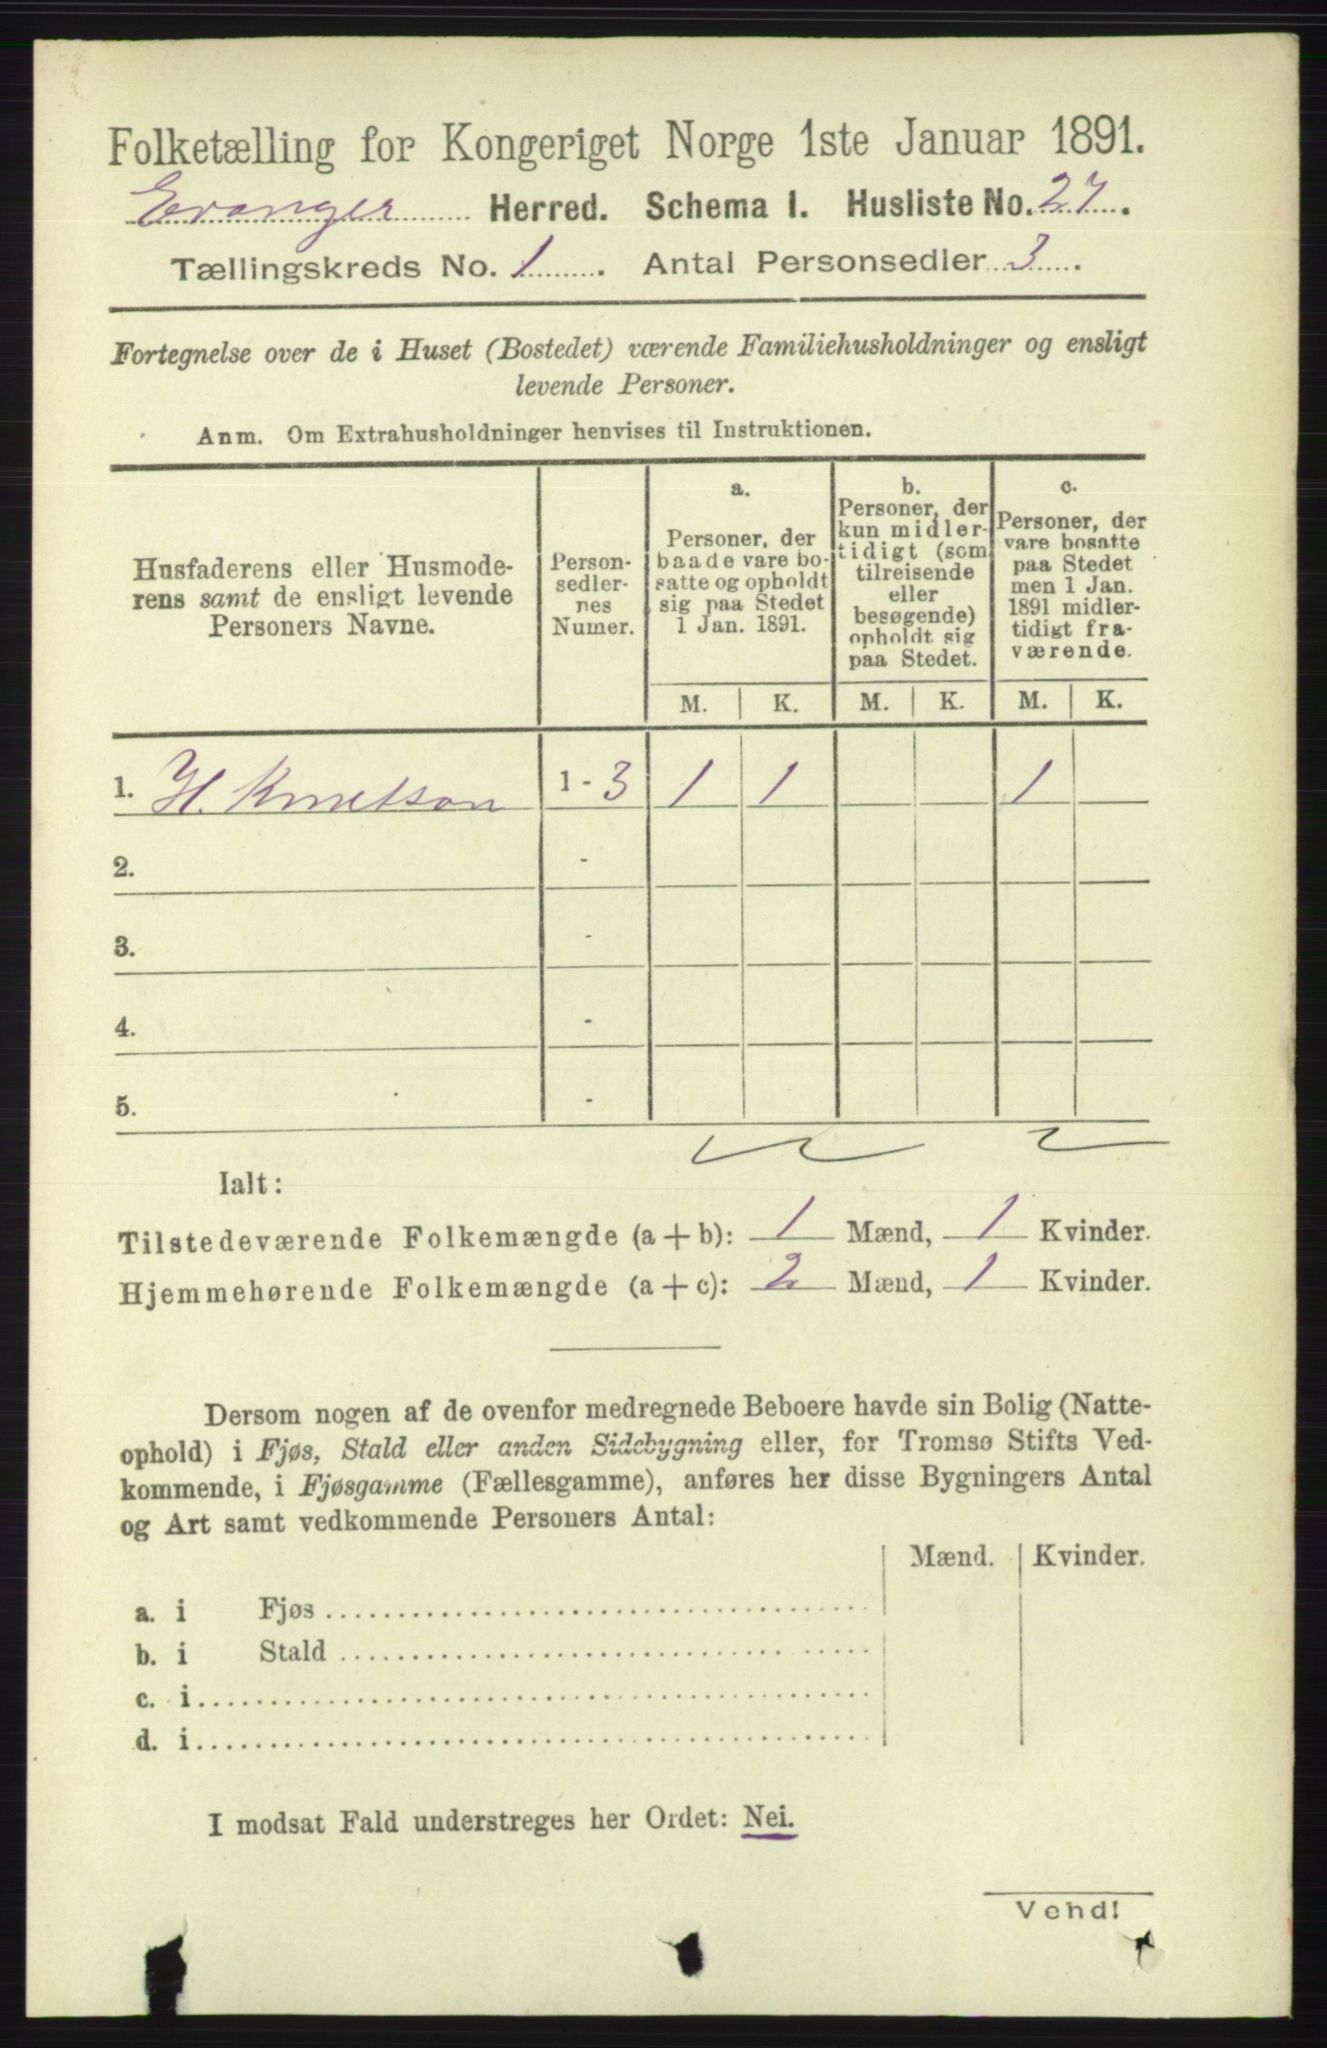 Folketælling for Kongeriget Norge 1ste Januar 1891.
Evanger Herred. Schema I. Husliste No. 27.
Tællingskreds No. 1. Antal Personsedler 3.
Fortegnelse over de i Huset (Bostedet) værende Familiehusholdninger og ensligt
levende Personer.
Anm. Om Extrahusholdninger henvises til Instruktionen.
Husfaderens eller Husmode-
rens samt de ensligt levende
Personers Navne.
Person-
sedler-
nes
Numer.
a.
Personer, der
baade vare bo-
satte og opholdt
sig paa Stedet
1 Jan. 1891.
b.
Personer, der
kun midler-
tidigt (som
tilreisende
eller
besøgende)
opholdt sig
paa Stedet.
c.
Personer, der
vare bosatte
paa Stedet
men 1 Jan.
1891 midler-
tidigt fra-
værende.
M. K. M. K. M. K.
1. H. Knutson 1 - 3 1 1 1
2. -
3. -
4. -
5. -
Ialt:
Tilstedeværende Folkemængde (a + b): 1 Mænd, 1 Kvinder.
Hjemmehørende Folkemængde (a + c): 2 Mænd, 1 Kvinder.
Dersom nogen af de ovenfor medregnede Beboere havde sin Bolig (Natte-
ophold) i Fjøs, Stald eller anden Sidebygning eller, for Tromsø Stifts Ved-
kommende, i Fjøsgamme (Fællesgamme), anføres her disse Bygningers Antal
og Art samt vedkommende Personers Antal:
Mænd. Kvinder.
a. i Fjøs
b. i Stald
c. i
d. i
I modsat Fald understreges her Ordet: Nei.
Vend!